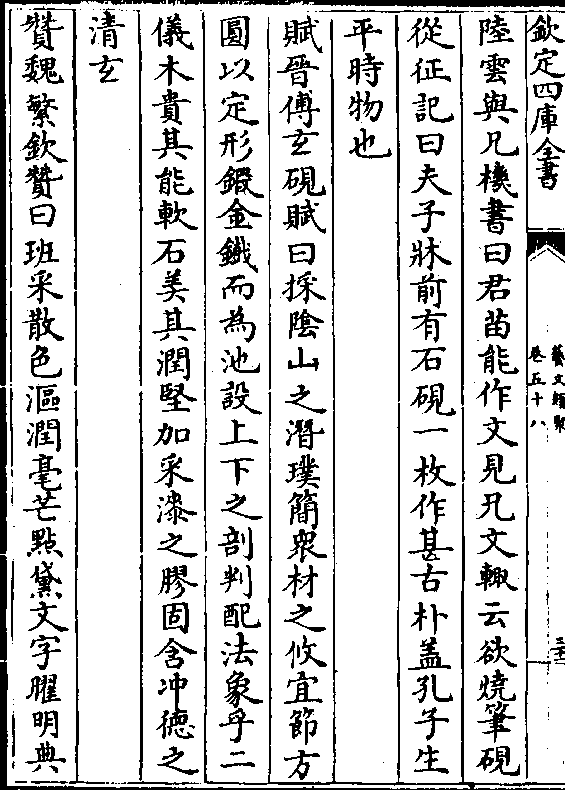 欽定四庫全書
藝文類聚
卷五十八
陸雲與兄機書曰君苗能作文見兄文輙云欲燒筆硯
從征記曰夫子牀前有石硯一枚作甚古朴盖孔子生
平時物也
賦晉傅𤣥硯賦曰採隂山之潛璞簡衆材之攸宜節方
圓以定形鍜金鐵而為池設上下之剖判配法象乎二
儀木貴其能軟石美其潤堅加采漆之膠固含冲德之
清𤣥
贊魏繁欽贊曰班采散色漚潤毫芒點黛文字耀明典